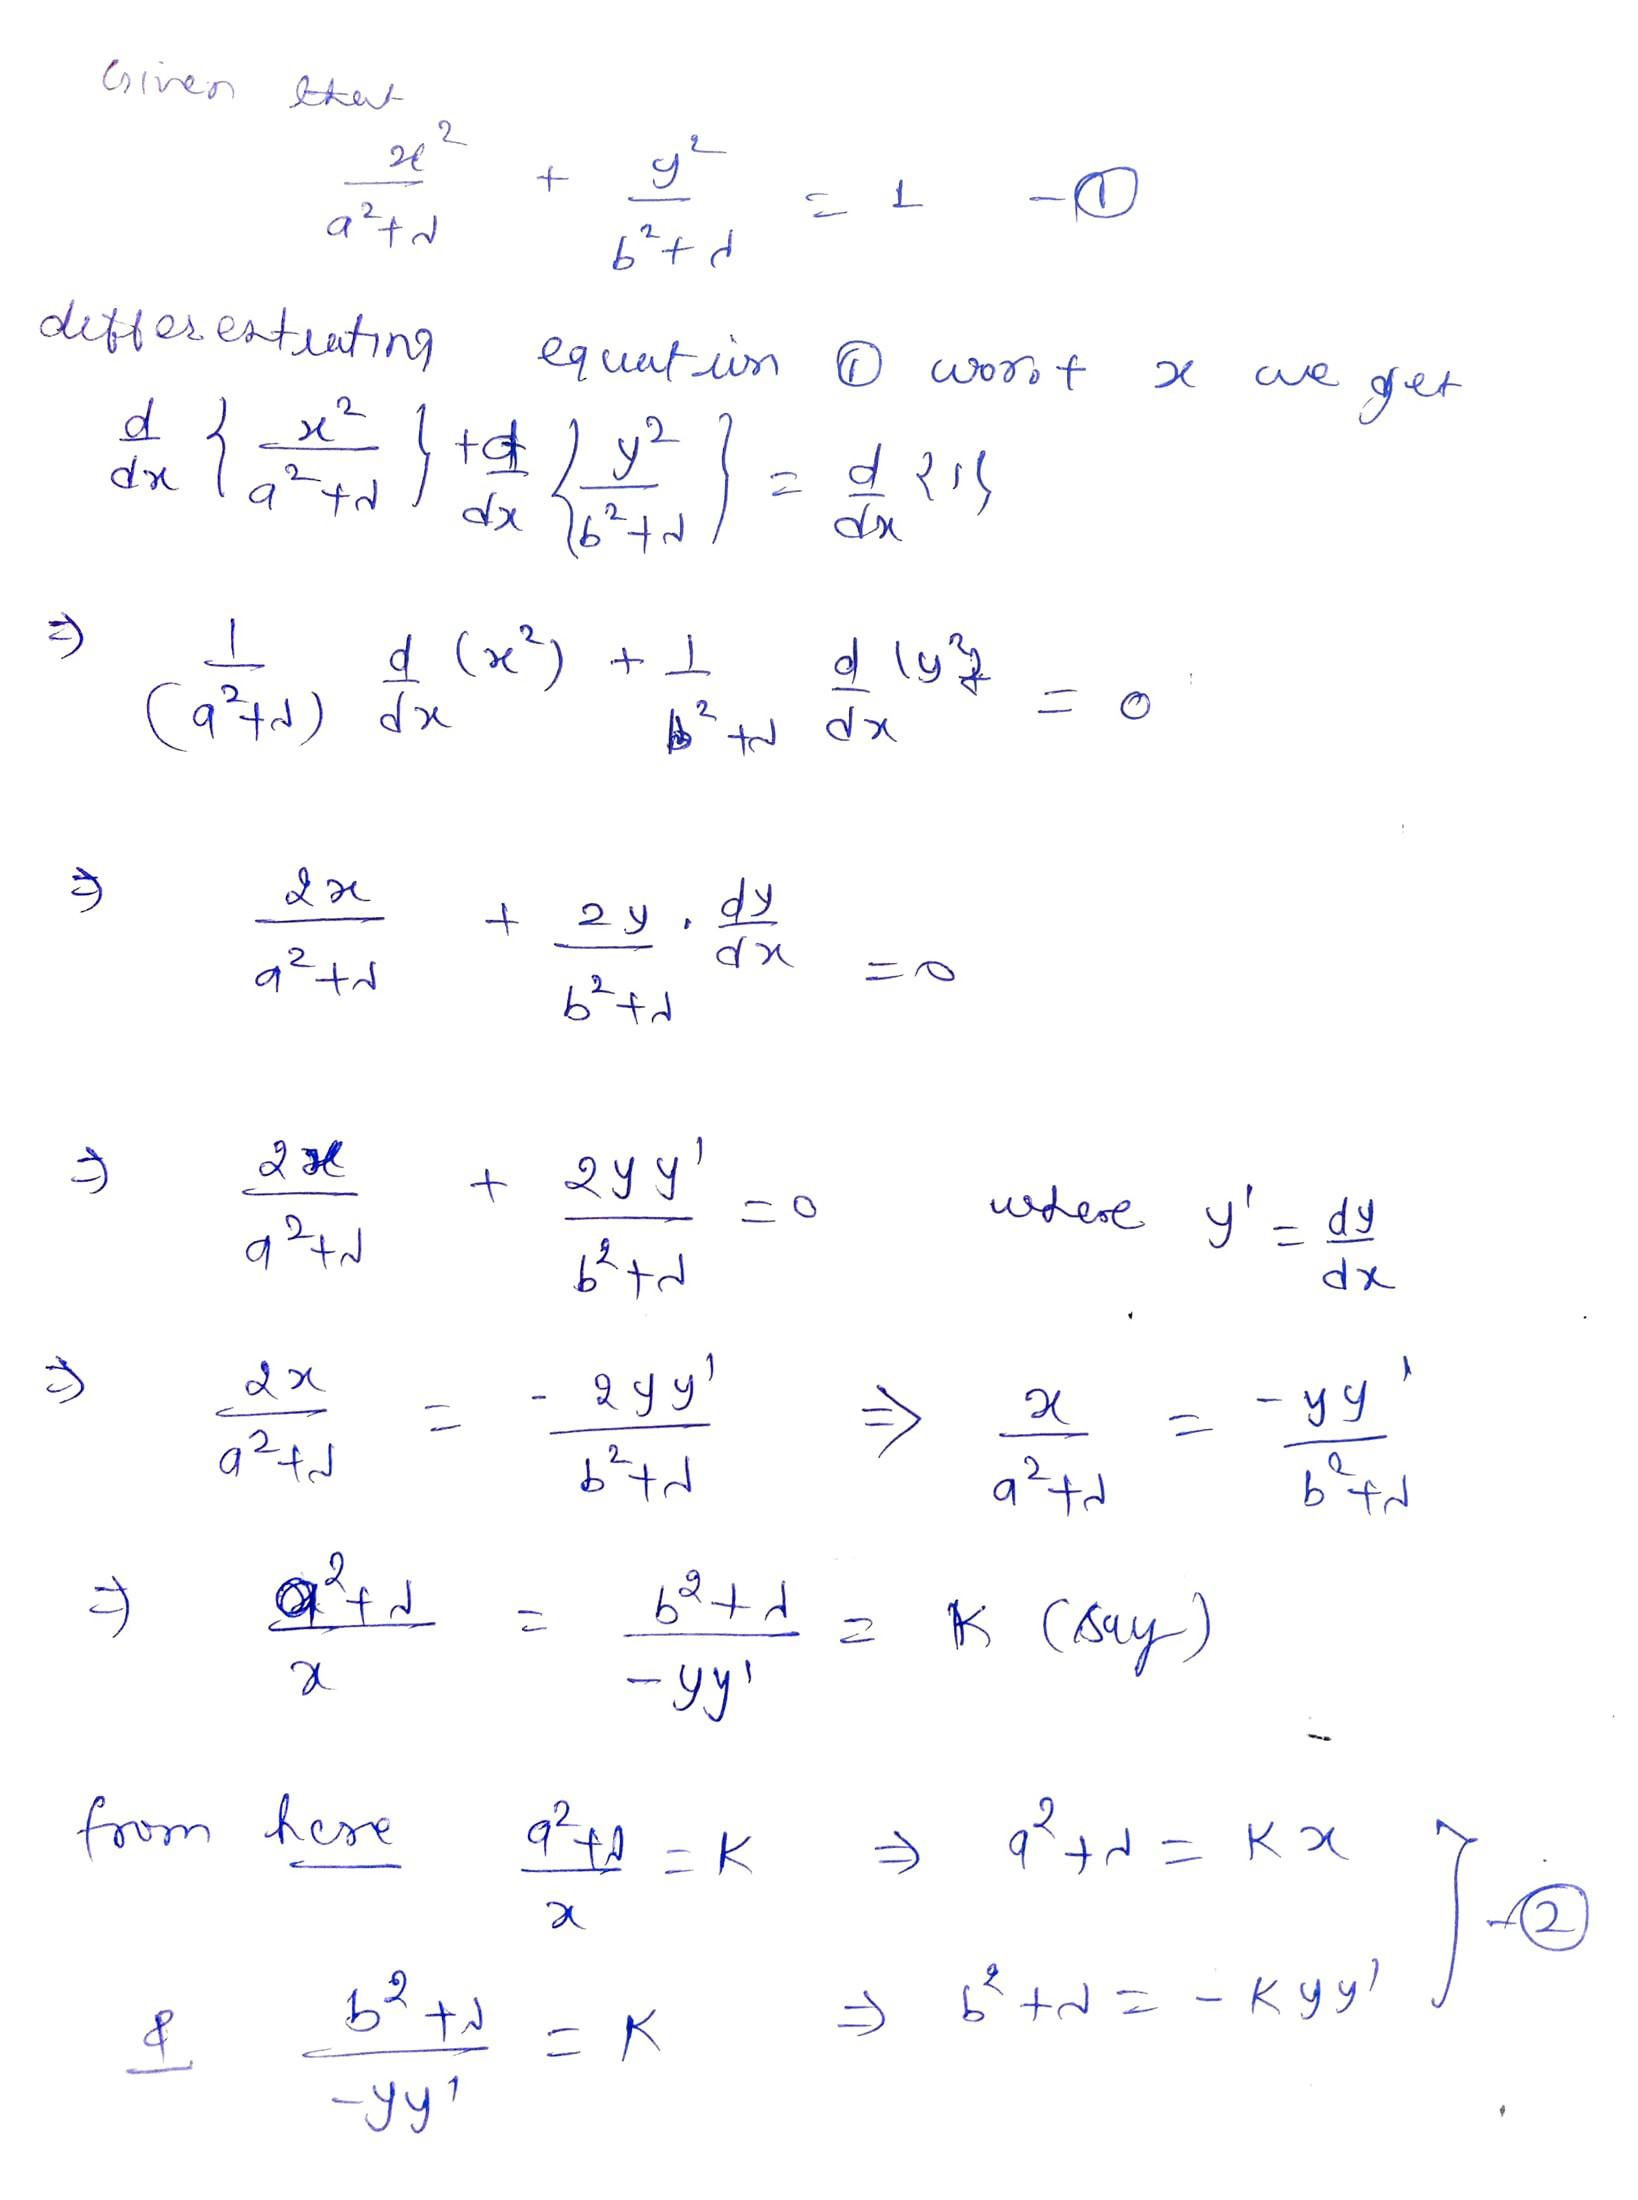 Given that
x²/(a²+λ) + y²/(b²+λ) = 1 -①
differentiating equation ① w.r.t x we get
d/dx {x²/(a²+λ)} + d/dx {y²/(b²+λ)} = d/dx {1}
⇒ 1/(a²+λ) d/dx (x²) + 1/(b²+λ) d/dx (y²) = 0
⇒ 2x/(a²+λ) + 2y/(b²+λ) . dy/dx = 0
⇒ 2x/(a²+λ) + 2yy'/(b²+λ) = 0 where y' = dy/dx
⇒ 2x/(a²+λ) = -2yy'/(b²+λ) ⇒ x/(a²+λ) = -yy'/(b²+λ)
⇒ (a²+λ)/x = (b²+λ)/(-yy') = K (say)
from here (a²+λ)/x = K ⇒ a²+λ = Kx
-②
& (b²+λ)/(-yy') = K ⇒ b²+λ = -Kyy'